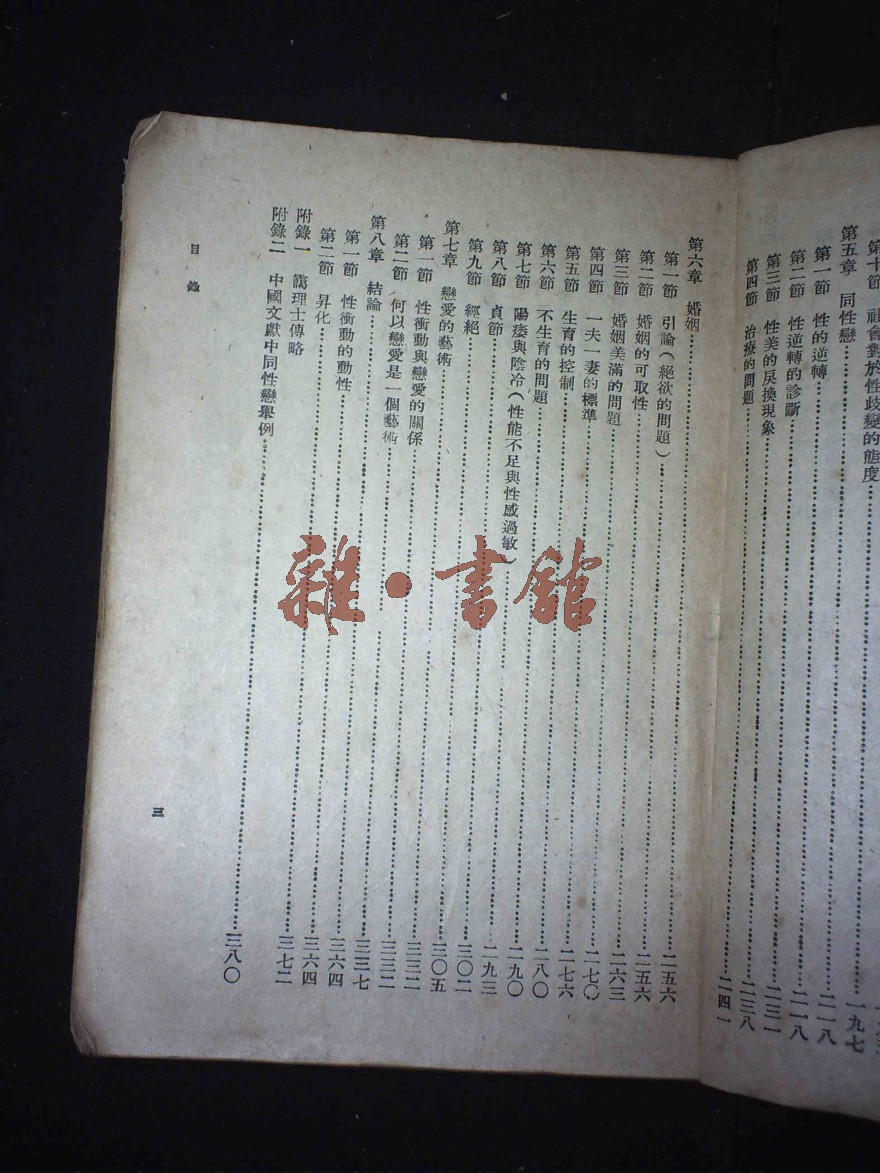 第十節 社會對於性歧變的態度……一九七
第五章 同性戀……二一八
第一節 性的逆轉……二一八
第二節 性逆轉的診斷……二三一
第三節 性美的戾換現象……二三八
第四節 治療的問題……二四一
第六章 婚姻……二五六
第一節 引論(絕欲的問題)……二五六
第二節 婚姻的可取性……二六三
第三節 婚姻美滿的問題……二七〇
第四節 一夫一妻的標準……二七六
第五節 生育的控制……二八〇
第六節 不生育的問題……二九〇
第七節 陽痿與陰冷(性能不足與性感過敏)……二九三
第八節 貞節……三〇二
第九節 經絕……三〇五
第七章 戀愛的藝術……三三二
第一節 性衝動與戀愛的關係……三三二
第二節 何以戀愛是一個藝術……三三七
第八章 結論……三六四
第一節 性衝動的動性……三六四
第二節 昇化……三七二
附錄一 靄理士傳略
附錄二 中國文獻中同性戀舉例……三八〇
目錄
三
雜·書館